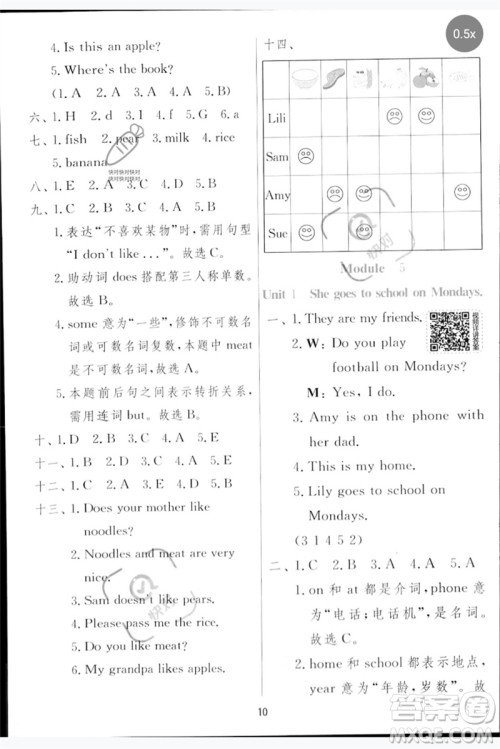 0.5x
4. Is this an apple?
5. Where's the book?
(1. A  2. A  3. A  4. B  5. B)
六、1. H  2. D  3. i  4. G  5. F  6. a
七、1. fish  2. pear  3. milk  4. rice
5. banana
快对快对快对
快对快对快对
八、1. E  2. A  3. C  4. D  5. B
九、1. B  2. B  3. C  4. A  5. B
1. 表达“不喜欢某物”时，需用句型
“I don't like ...”。故选 B。
2. 助动词 does 搭配第三人称单数。
故选 B。
4. some 意为“一些”，修饰不可数名
词或可数名词复数，本题中 meat
是不可数名词。故选 A。
5. 本题前后句之间表示转折关系，
需用连词 but。故选 B。
十、1. D  2. B  3. C  4. A  5. E
十一、1. B  2. B  3. A  4. A  5. B
十二、1. D  2. C  3. A  4. B
十三、1. Does your mother like
noodles?
2. Noodles and meat are very
nice.
3. Sam doesn't like pears.
4. Please pass me the rice.
5. Do you like meat?
6. My grandpa likes apples.
十四、
Lili
Sam
Amy
Sue
快对
Module 5
Unit 1  She goes to school on Mondays.
一、1. They are my friends.
2. W: Do you play
football on Mondays?
M: Yes, I do.
3. Amy is on the phone with
her dad.
4. This is my home.
5. Lily goes to school on
Mondays.
(3 1 4 5 2)
二、1. C  2. B  3. A  4. C  5. A
1. on 和 at 都是介词，phone 意为
“电话；电话机”，是名词。
故选 C。
2. home 和 school 都表示地点，
year 意为“年龄，岁数”。故
10